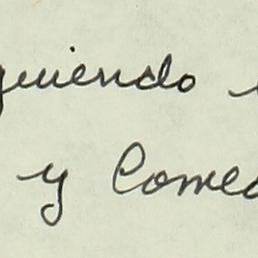 guiendo
y Comed